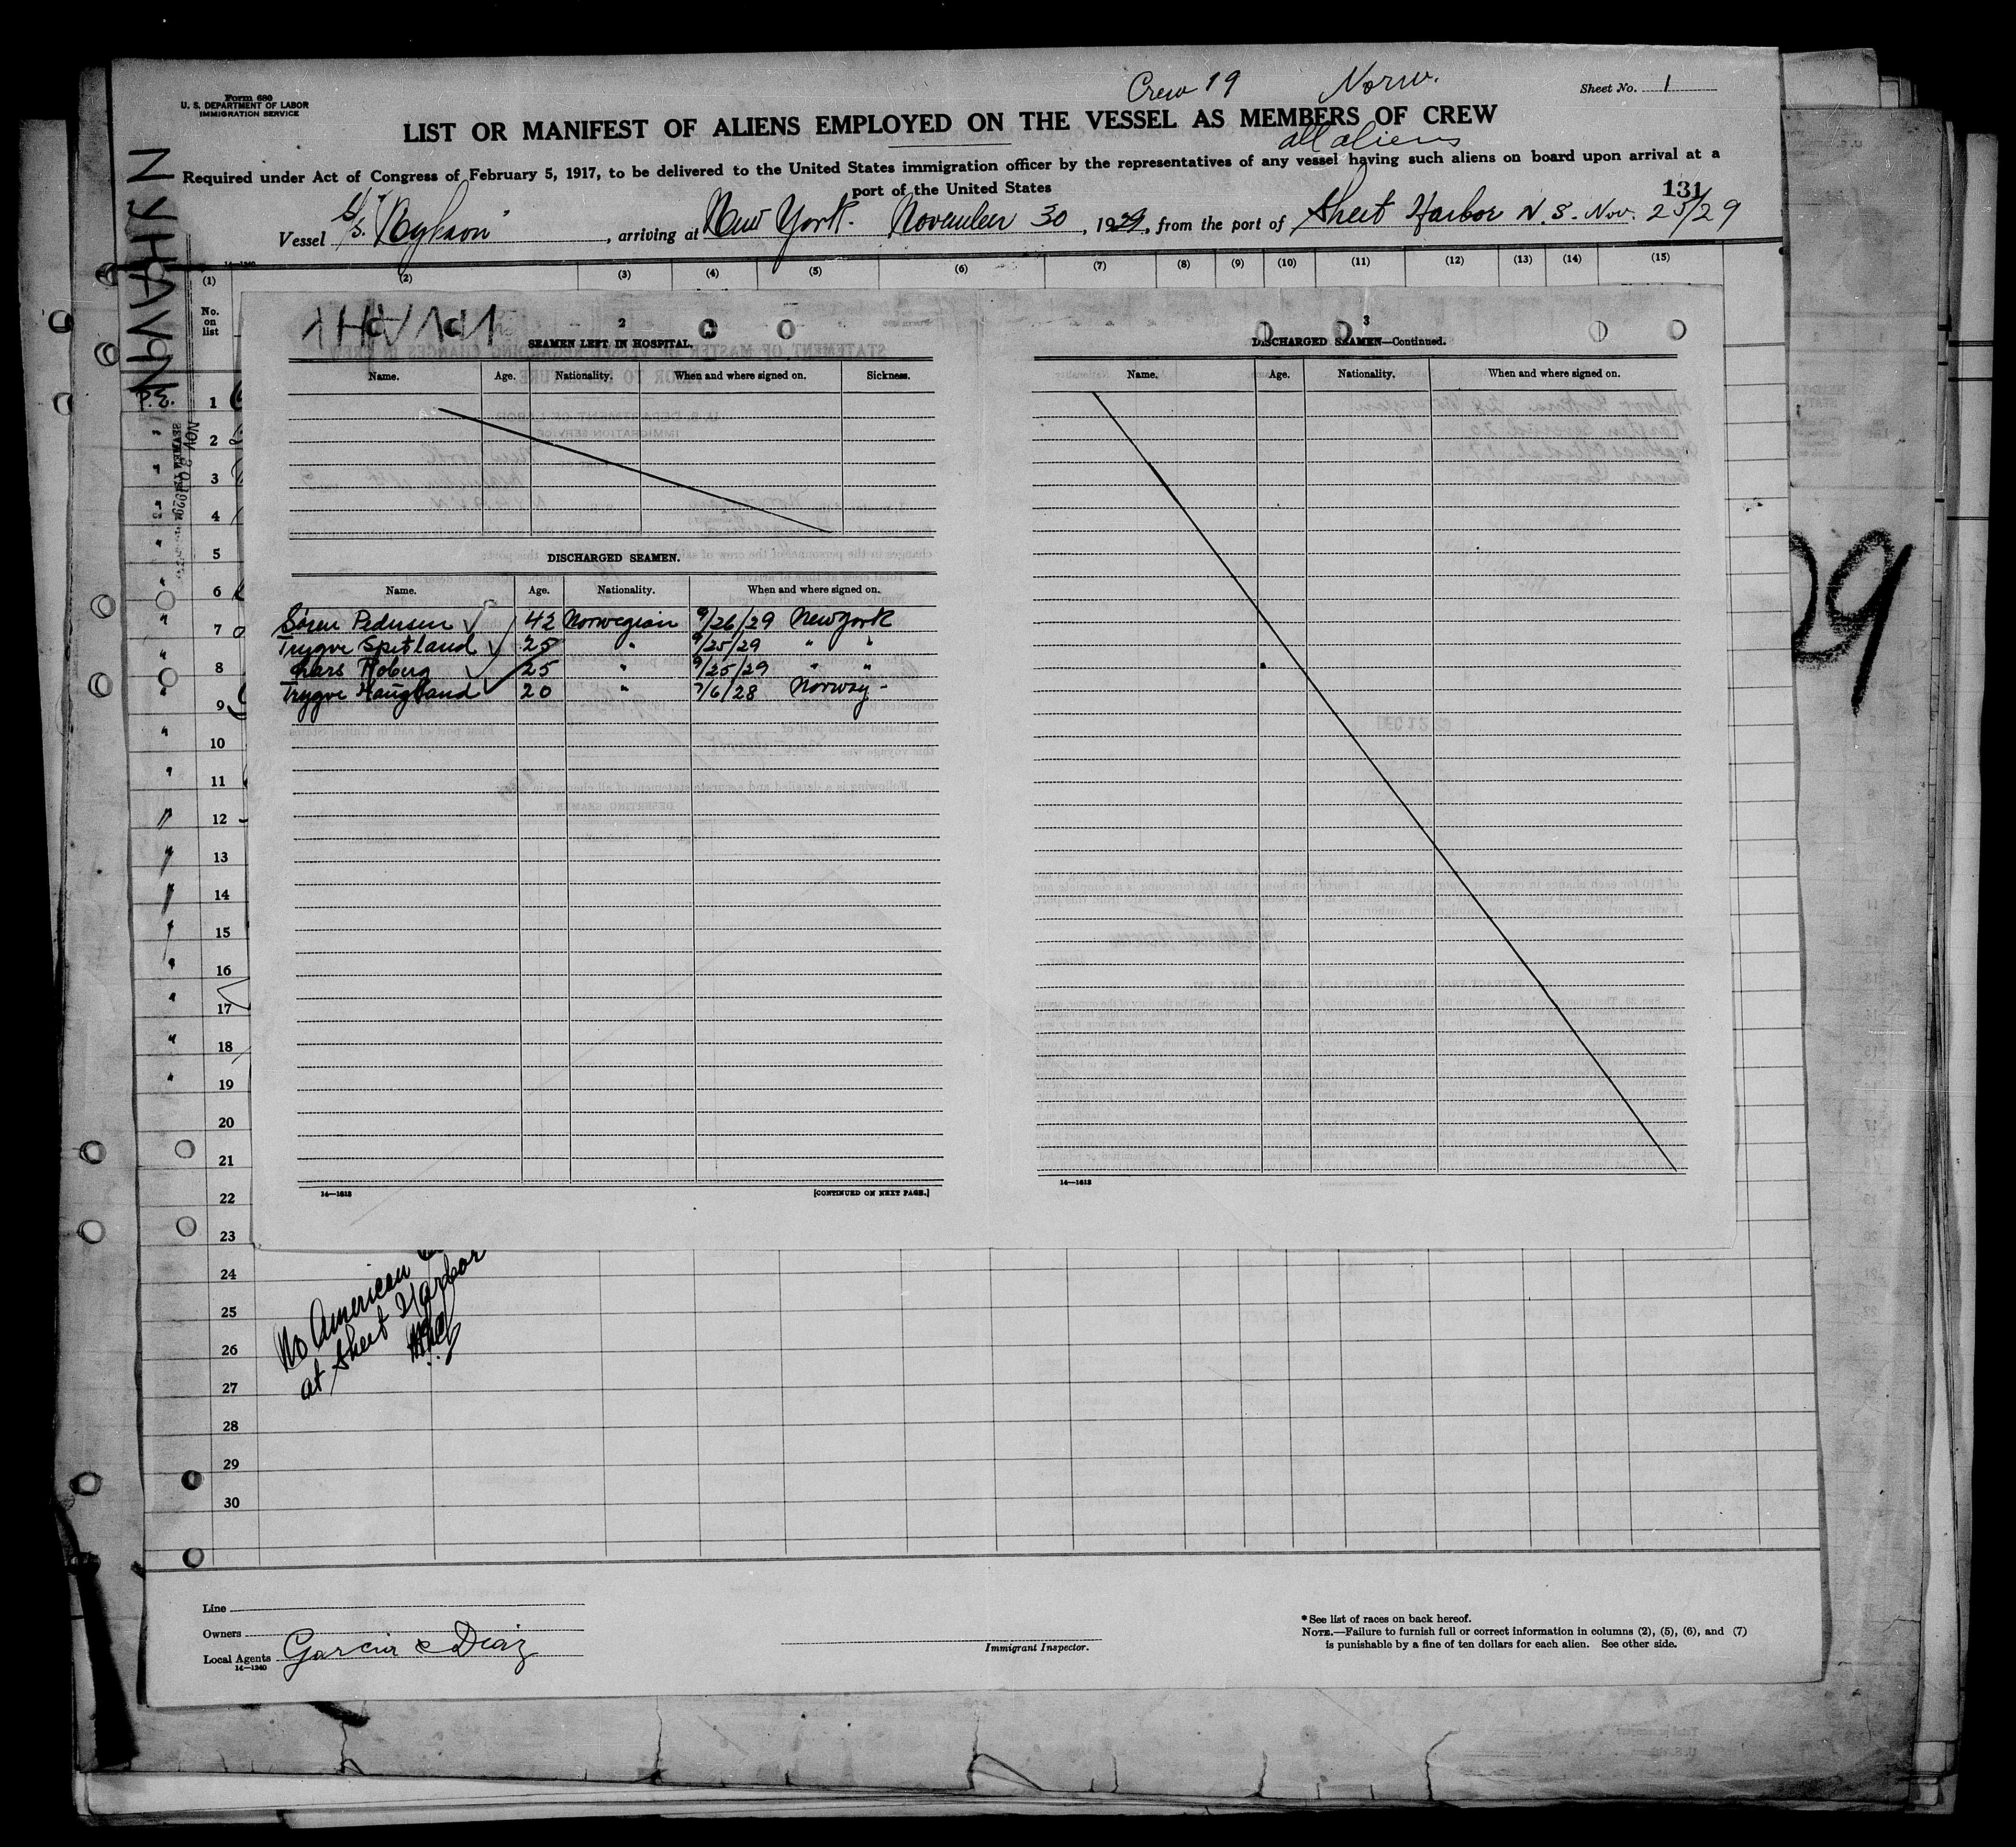 Form 680
U. S. DEPARTMENT OF LABOR
IMMIGRATION SERVICE
Crew 19 Norw.
Sheet No. 1
LIST OR MANIFEST OF ALIENS EMPLOYED ON THE VESSEL AS MEMBERS OF CREW
all aliens
Required under Act of Congress of February 5, 1917, to be delivered to the United States immigration officer by the representatives of any vessel having such aliens on board upon arrival at a
port of the United States
131
Vessel S/S "Nyhavn", arriving at New York. November 30, 1929, from the port of Sheet Harbor N.S. Nov. 25/29
NYHAVN
14—1240
(1) (2) (3) (4) (5) (6) (7) (8) (9) (10) (11) (12) (13) (14) (15)
No. on list
P.E.
NOV 30 1929
2
SEAMEN LEFT IN HOSPITAL.
Name. Age. Nationality. When and where signed on. Sickness.
DISCHARGED SEAMEN.
Name. Age. Nationality. When and where signed on.
Søren Pedersen 42 Norwegian 9/26/29 New York
Trygve Spitland 25 " 9/25/29 " "
Lars Moberg 25 " 9/25/29 " "
Trygve Haugland 20 " 7/6/28 Norway-
14—1618
[CONTINUED ON NEXT PAGE.]
3
DISCHARGED SEAMEN—Continued.
Name. Age. Nationality. When and where signed on.
14—1618
1
2
3
4
5
6
7
8
9
10
11
12
13
14
15
16
17
18
19
20
21
22
23
24
25
26
27
28
29
30
No American
at Sheet Harbor
29
Line
Owners
Local Agents Garcia & Diaz
14—1240
Immigrant Inspector.
* See list of races on back hereof.
NOTE.—Failure to furnish full or correct information in columns (2), (5), (6), and (7)
is punishable by a fine of ten dollars for each alien. See other side.